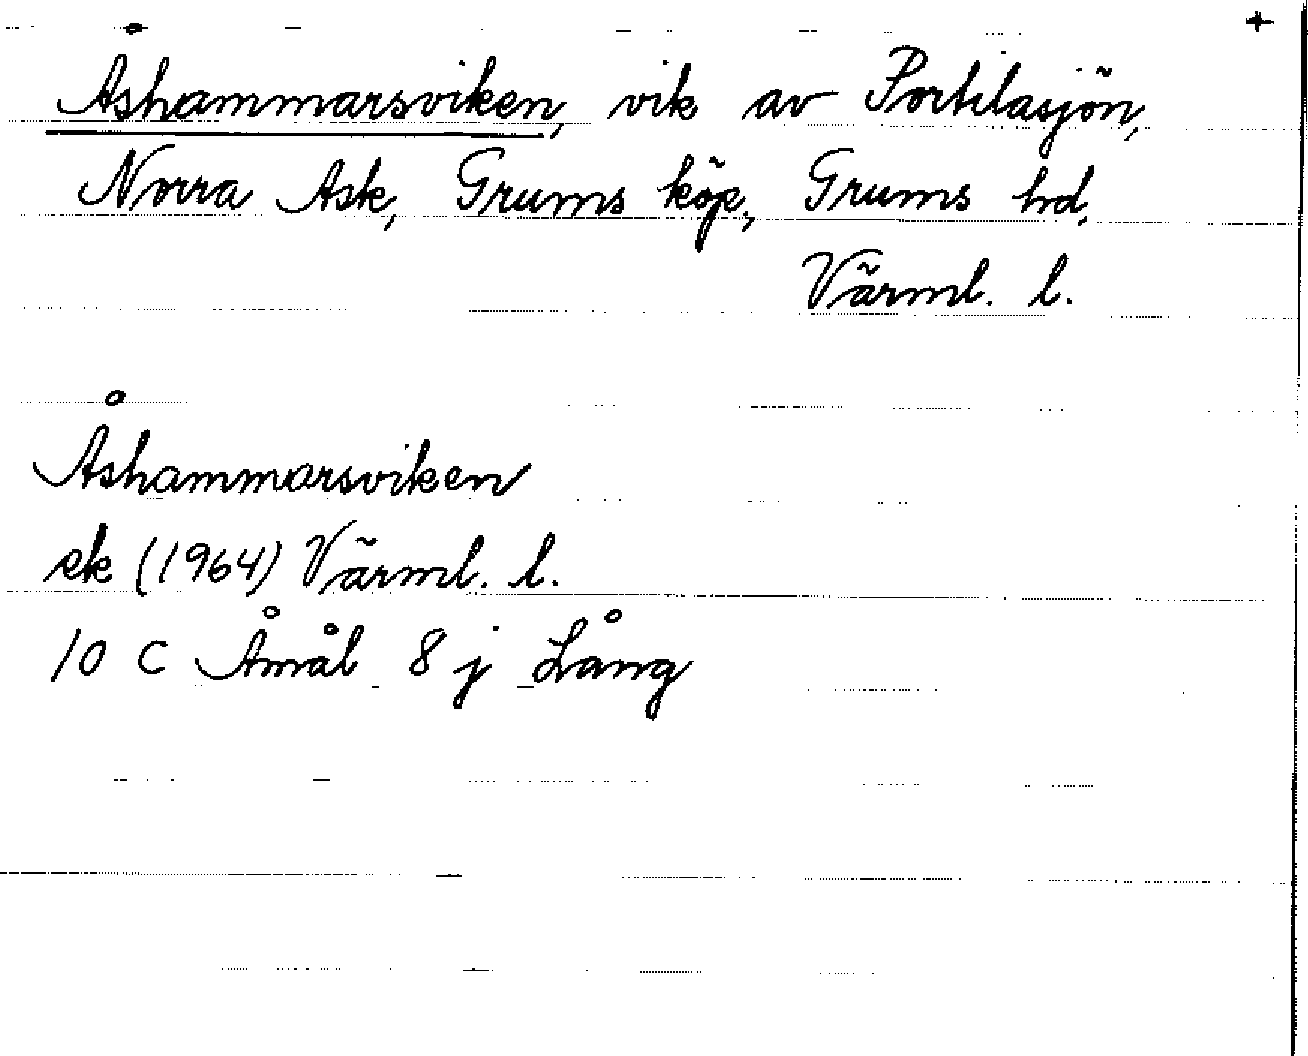 +
Åshammarsviken, vik av Portilasjön,
Norra Ask, Grums köp, Grums hd,
Värml. l.
Åshammarsviken
ek (1964) Värml. l.
10 C Åmål 8 j Lång